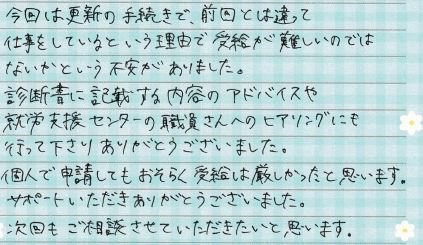 今回は更新の手続きで、前回とは違って
仕事をしているという理由で受給が難しいのでは
ないかという不安がありました。
診断書に記載する内容のアドバイスや
就労支援センターの職員さんへのヒアリングにも
行って下さりありがとうございました。
個人で申請してもおそらく受給は厳しかったと思います。
サポートいただきありがとうございました。
次回もご相談させていただきたいと思います。